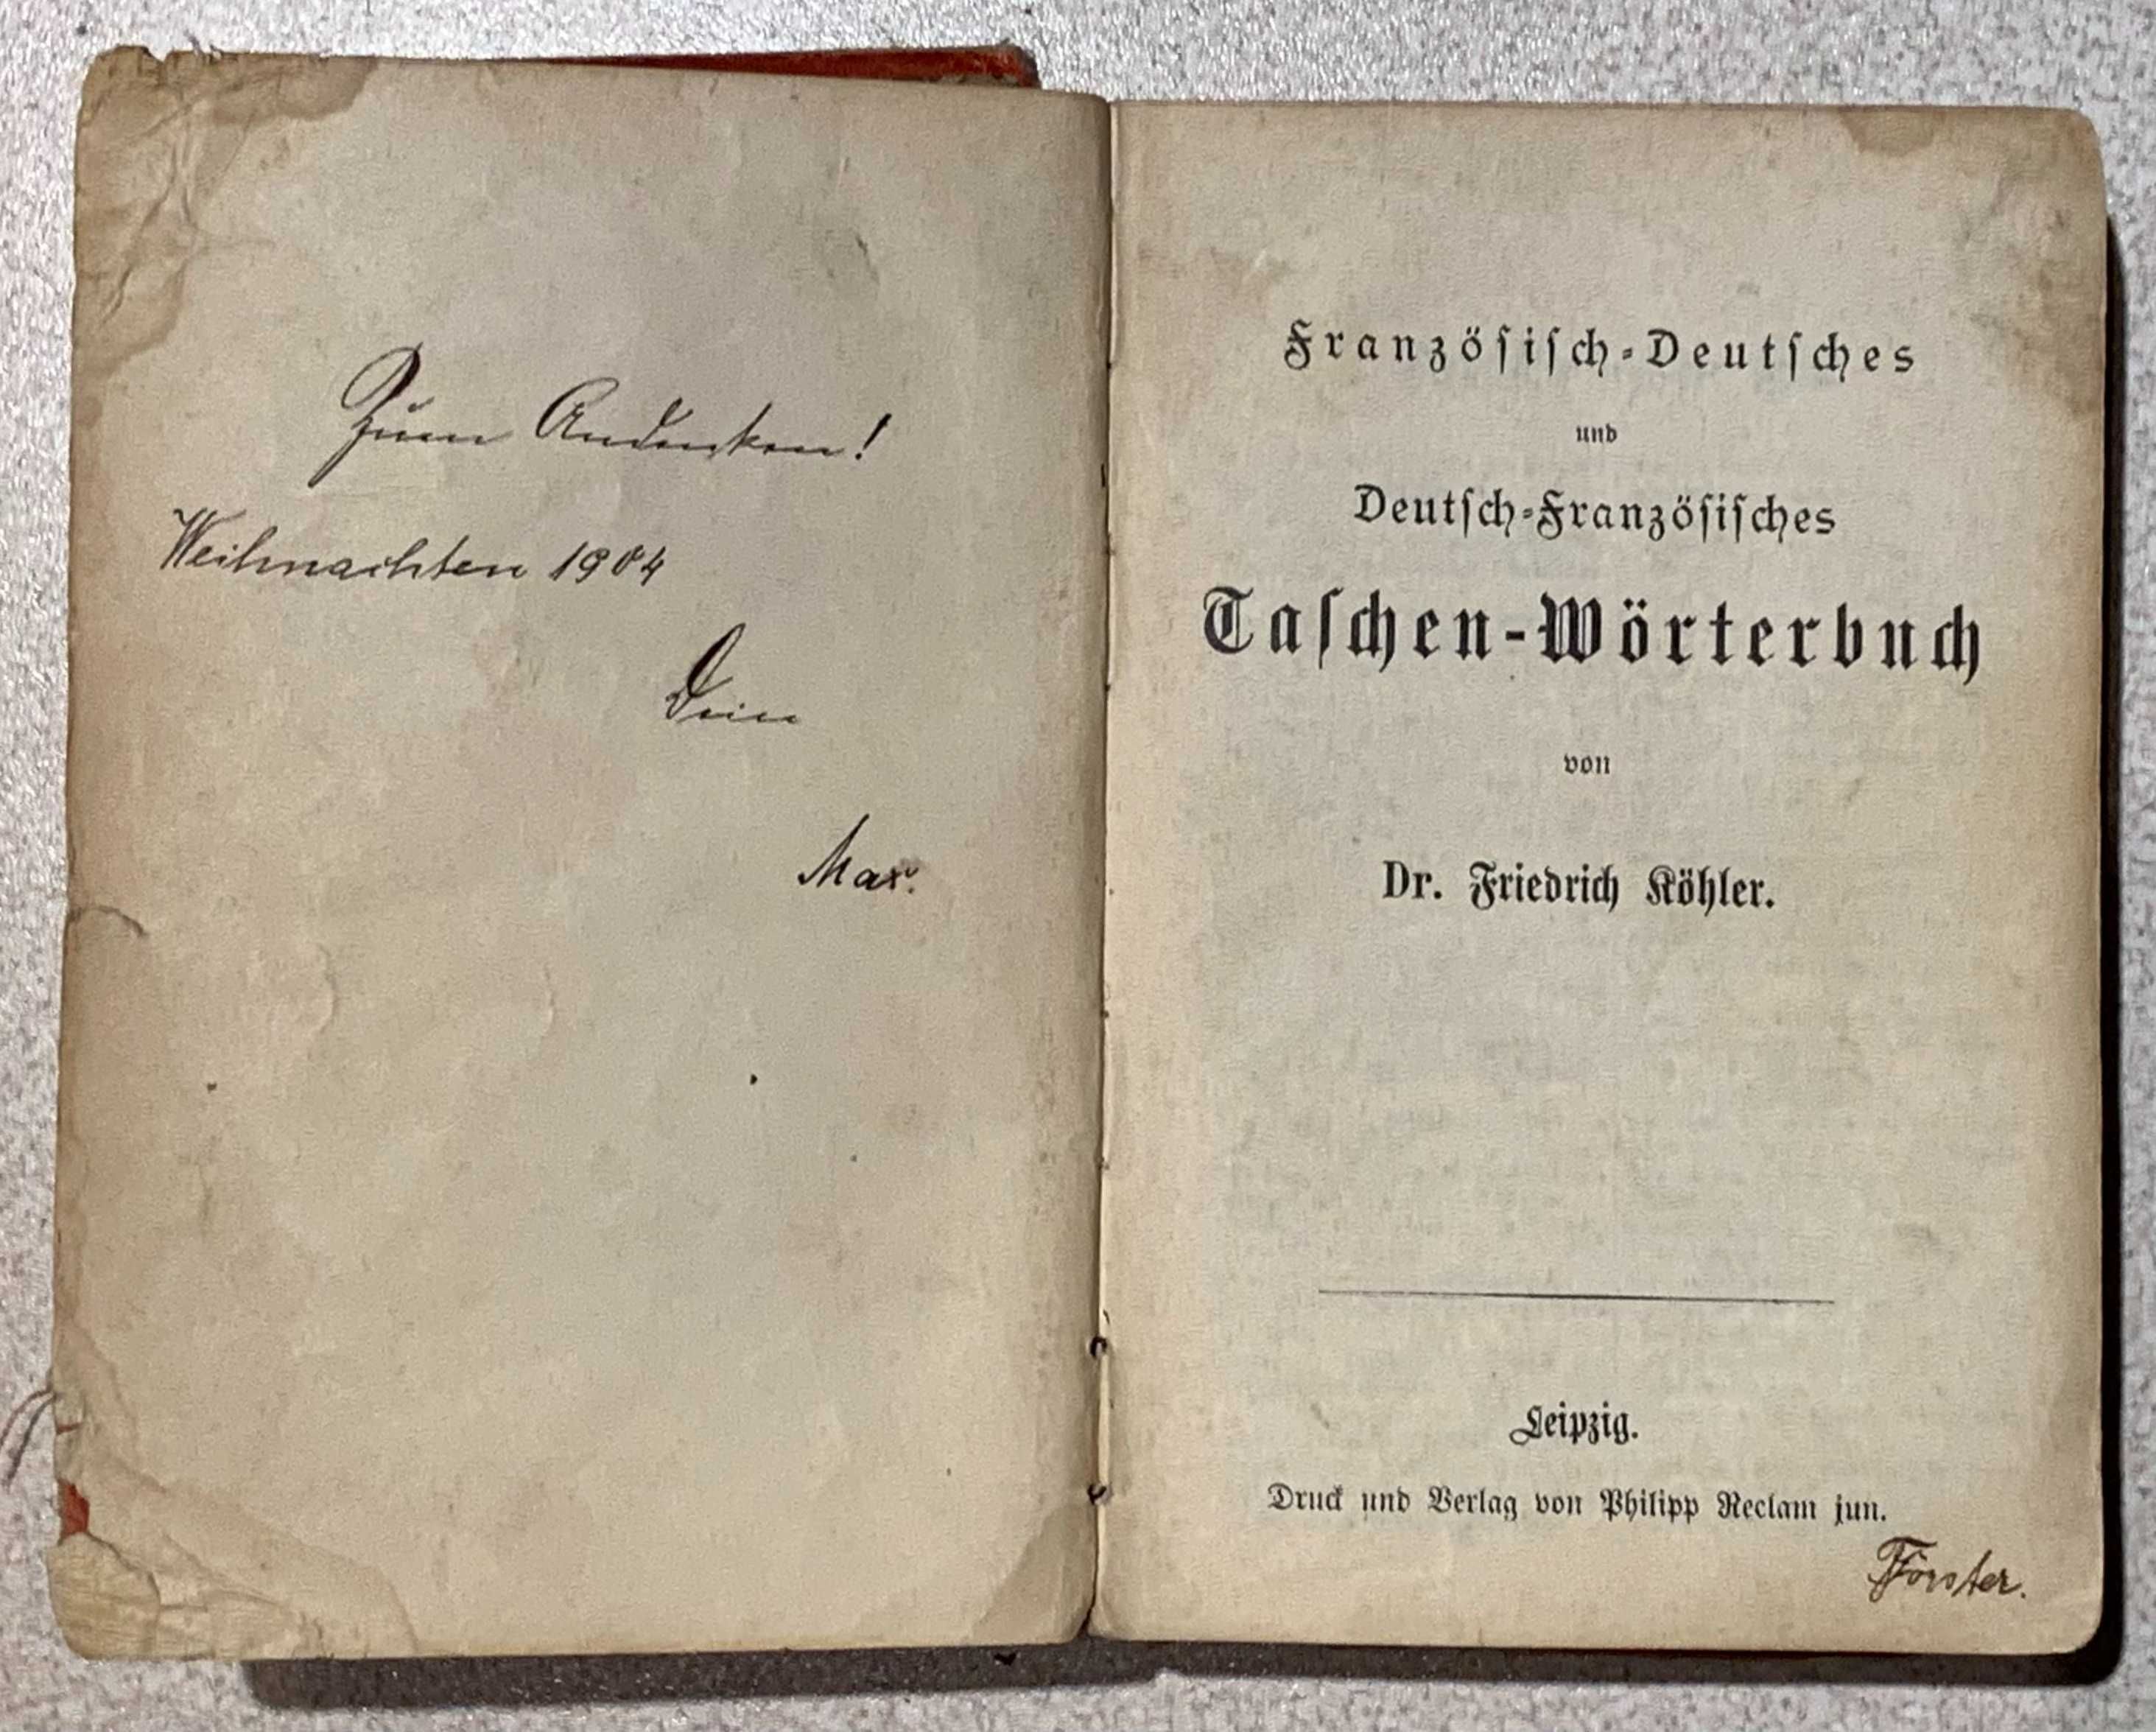 Zum Andenken!
Weihnachten 1904
Dein
Max.
Franzöſiſch-Deutſches
und
Deutſch-Franzöſiſches
Taſchen-Wörterbuch
von
Dr. Friedrich Köhler.
Leipzig.
Druck und Verlag von Philipp Reclam jun.
Förster.